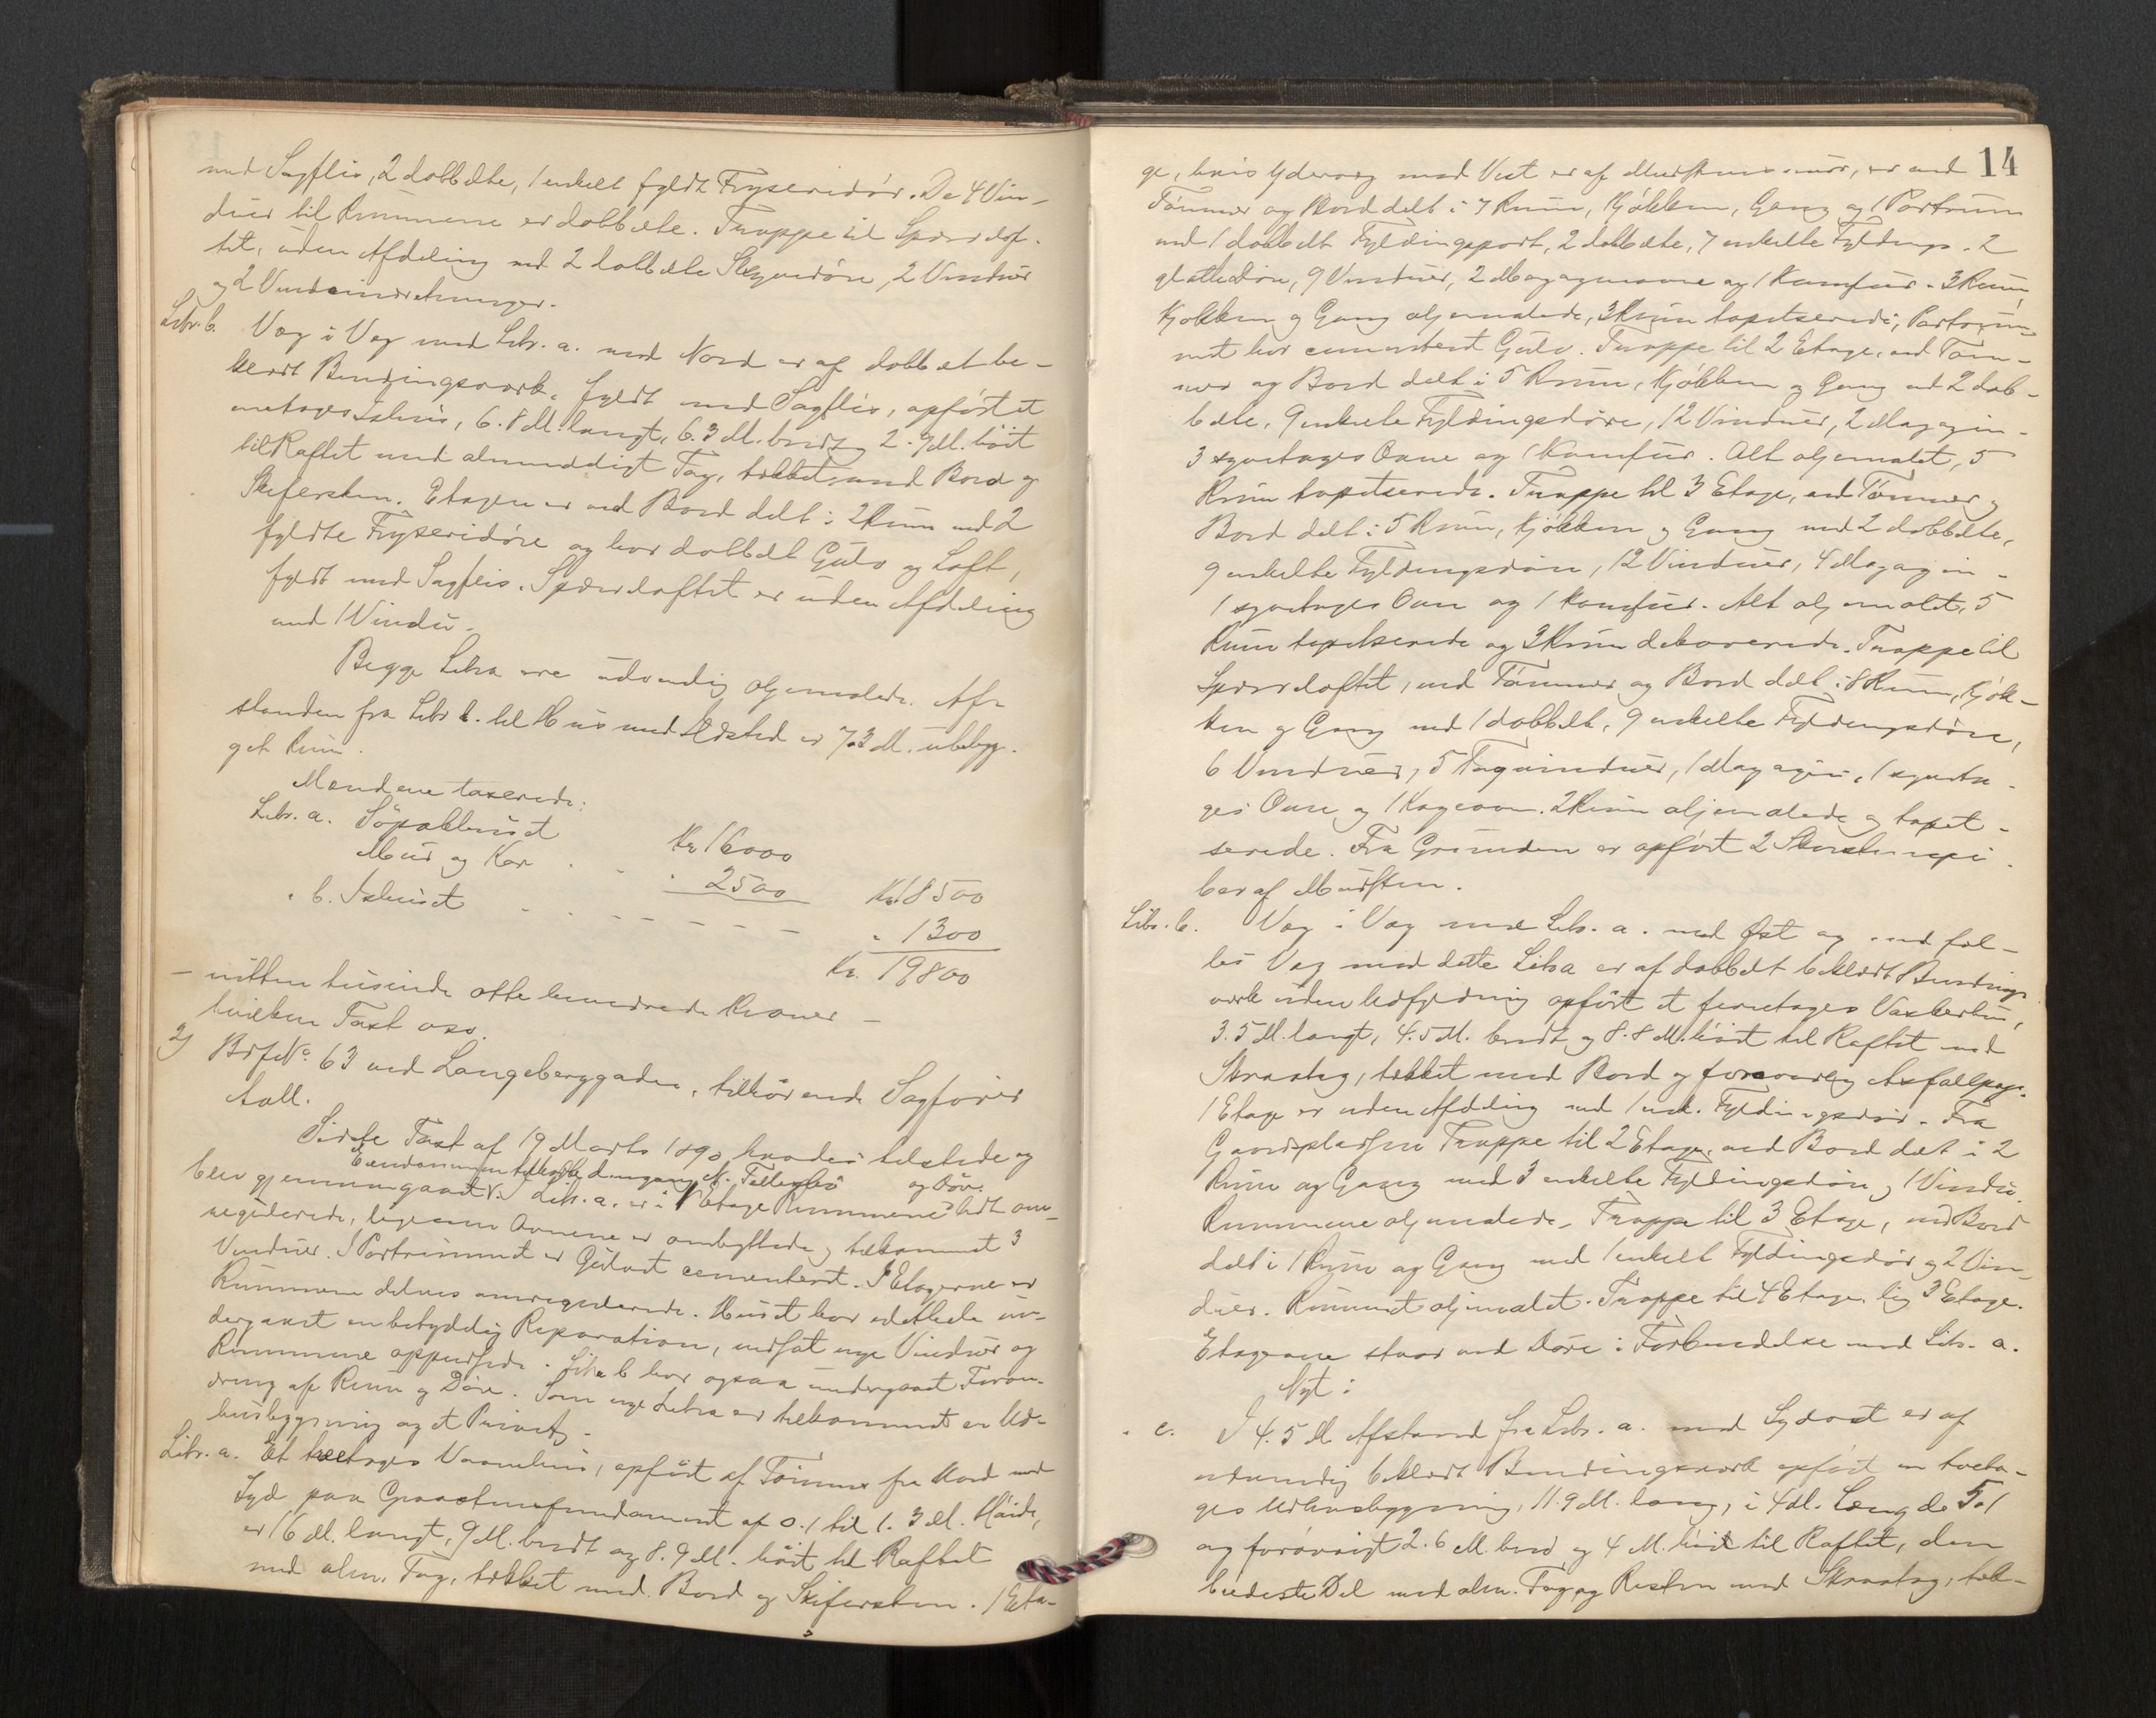 med Sagflis, 2 dobbelte, 1 enkelt fyldt Fryseridør. De 4 Vin-
duer til Rummene er dobbelte. Trappe til Sperrelof-
tet, uden Afdeling med 2 dobbelte Skyvedøre, 2 Vinduer
og 2 Vindeindretninger.
Litr. b. Væg i Væg med Litr. a. mod Nord er af dobbelt be-
klædt Bindingsværk, fyldt med Sagflis, opført et
enetages Ishus, 6.8 M. langt, 6.3 M. bredt og 2.9 M. höit
til Raftet med almindeligt Tag, tækket med Bord og
Skifersten. Etagen er med Bord delt i 2 Rum med 2
fyldte Fryseridøre og har dobbelt Gulv og Loft,
fyldt med Sagflis. Sperreloftet er uden Afdeling
med 1 Vindu.
Begge Litra ere udvendig oljemalede. Af-
standen fra Litr. b. til Hus med Ildsted er 7.3 M. ubebyg-
get Rum.
Mændene taxerede:
Litr. a. Söpakhuset Kr. 16000
Mur og Kar " 2500 Kr. 18500
" b. Ishuset " 1300
Kr. 19800
- nitten tusinde otte hundrede Kroner -
hvilken Taxt osv.
2) Brf. No. 63 ved Langebryggaden, tilhørende Sagfører
Aall.
Sidste Taxt af 19 Marts 1890 havdes tilstede og
Eiendommen tilhørte dengang N.
og Döre
blev gjennemgaaet. Litr. a. er i 1 Etage Rummene lidt om-
regulerede, ligesom Ovnene er ombyttede og tilkommet 3
Vinduer. I Portrummet er Gulvet cementeret. I Etagerne er
Rummene delvis omregulerede. Huset har idethele un-
dergaaet en betydelig Reparation, indsat nye Vinduer og
Rummene oppudsede. Litr. b har ogsaa undergaaet Foran-
dring af Rum og Döre. Som nye Litra er tilkommet en Ud-
husbygning og et Privet.
Litr. a. Et treetages Vaanehus, opført af Tömmer fra Nord mod
Syd paa Graastensfundament af 0.1 til 1.3 M. Höide,
er 16 M. langt, 9 M. bredt og 8.9 M. höit til Raftet
med alm. Tag, tækket med Bord og Skifersten. 1 Eta-
14
ge, hvis Ydervæg mod Vest er af Murstensmur, er med
Tömmer og Bord delt i 7 Rum, Kjökken, Gang og 1 Portrum
med 1 dobbelt Fyldingsport, 2 dobbelte, 7 enkelte Fyldings- 2
glatte Döre, 9 Vinduer, 2 Magasinovne og 1 Komfur. 3 Rum,
Kjökken og Gang oljemalede, 3 Rum tapetserede, Portrum-
met har cementeret Gulv. Trappe til 2 Etage, med Töm-
mer og Bord delt i 5 Rum, Kjökken og Gang med 2 dob-
belte, 9 enkelte Fyldingsdöre, 12 Vinduer, 2 Magazin-
3 Ovne og 1 Komfur. Alt oljemalet, 5
Rum tapetserede. Trappe til 3 Etage, med Tömmer og
Bord delt i 5 Rum, Kjökken og Gang med 2 dobbelte,
9 enkelte Fyldingsdöre, 12 Vinduer, 4 Magazin-
1 Ovn og 1 Komfur. Alt oljemalet, 5
Rum tapetserede og 3 Rum dekorerede. Trappe til
Sperreloftet, med Tömmer og Bord delt i 8 Rum, Kjök-
ken og Gang med 1 dobbelt, 9 enkelte Fyldingsdöre,
6 Vinduer, 5 Tagvinduer, 1 Magazin-, 1
Ovne og 1 Kogeovn. 2 Rum oljemalede og tapet-
serede. Fra Grunden er opført 2 Skorstenspi-
ber af Mursten.
Litr. b. Væg i Væg med Litr. a. mod Øst og med fæl-
les Væg med dette Litra er af dobbelt beklædt Bindings-
værk uden Udfyldning opført et fireetages Vaskerhus,
3.5 M. langt, 4.5 M. bredt og 8.8 M. höit til Raftet med
Skraatag, tækket med Bord og forsvarlig Asfaltpap.
1 Etage er uden Afdeling med 1 enk. Fyldingsdör. Fra
Gaardspladsen Trappe til 2 Etage, med Bord delt i 2
Rum og Gang med 3 enkelte Fyldingsdöre og 1 Vindu.
Rummene oljemalede. Trappe til 3 Etage, med Bord
delt i 1 Rum og Gang med 1 enkelt Fyldingsdör og 2 Vin-
duer. Rummet oljemalet. Trappe til 4 Etage, lig 3 Etage.
Etagerne staar ved Döre i Forbindelse med Litr. a.
Nyt:
" c. I 4.5 M Afstand fra Litr. a. mod Sydost er af
udvendig beklædt Bindingsværk opført en toeta-
ges Udhusbygning, 11.9 M. lang, i 4 M. Længde 5.1
og forövrigt 2.6 M. bred og 4 M. höit til Raftet, den
bredeste Del med alm. Tag og Resten med Skraatag, tæk-